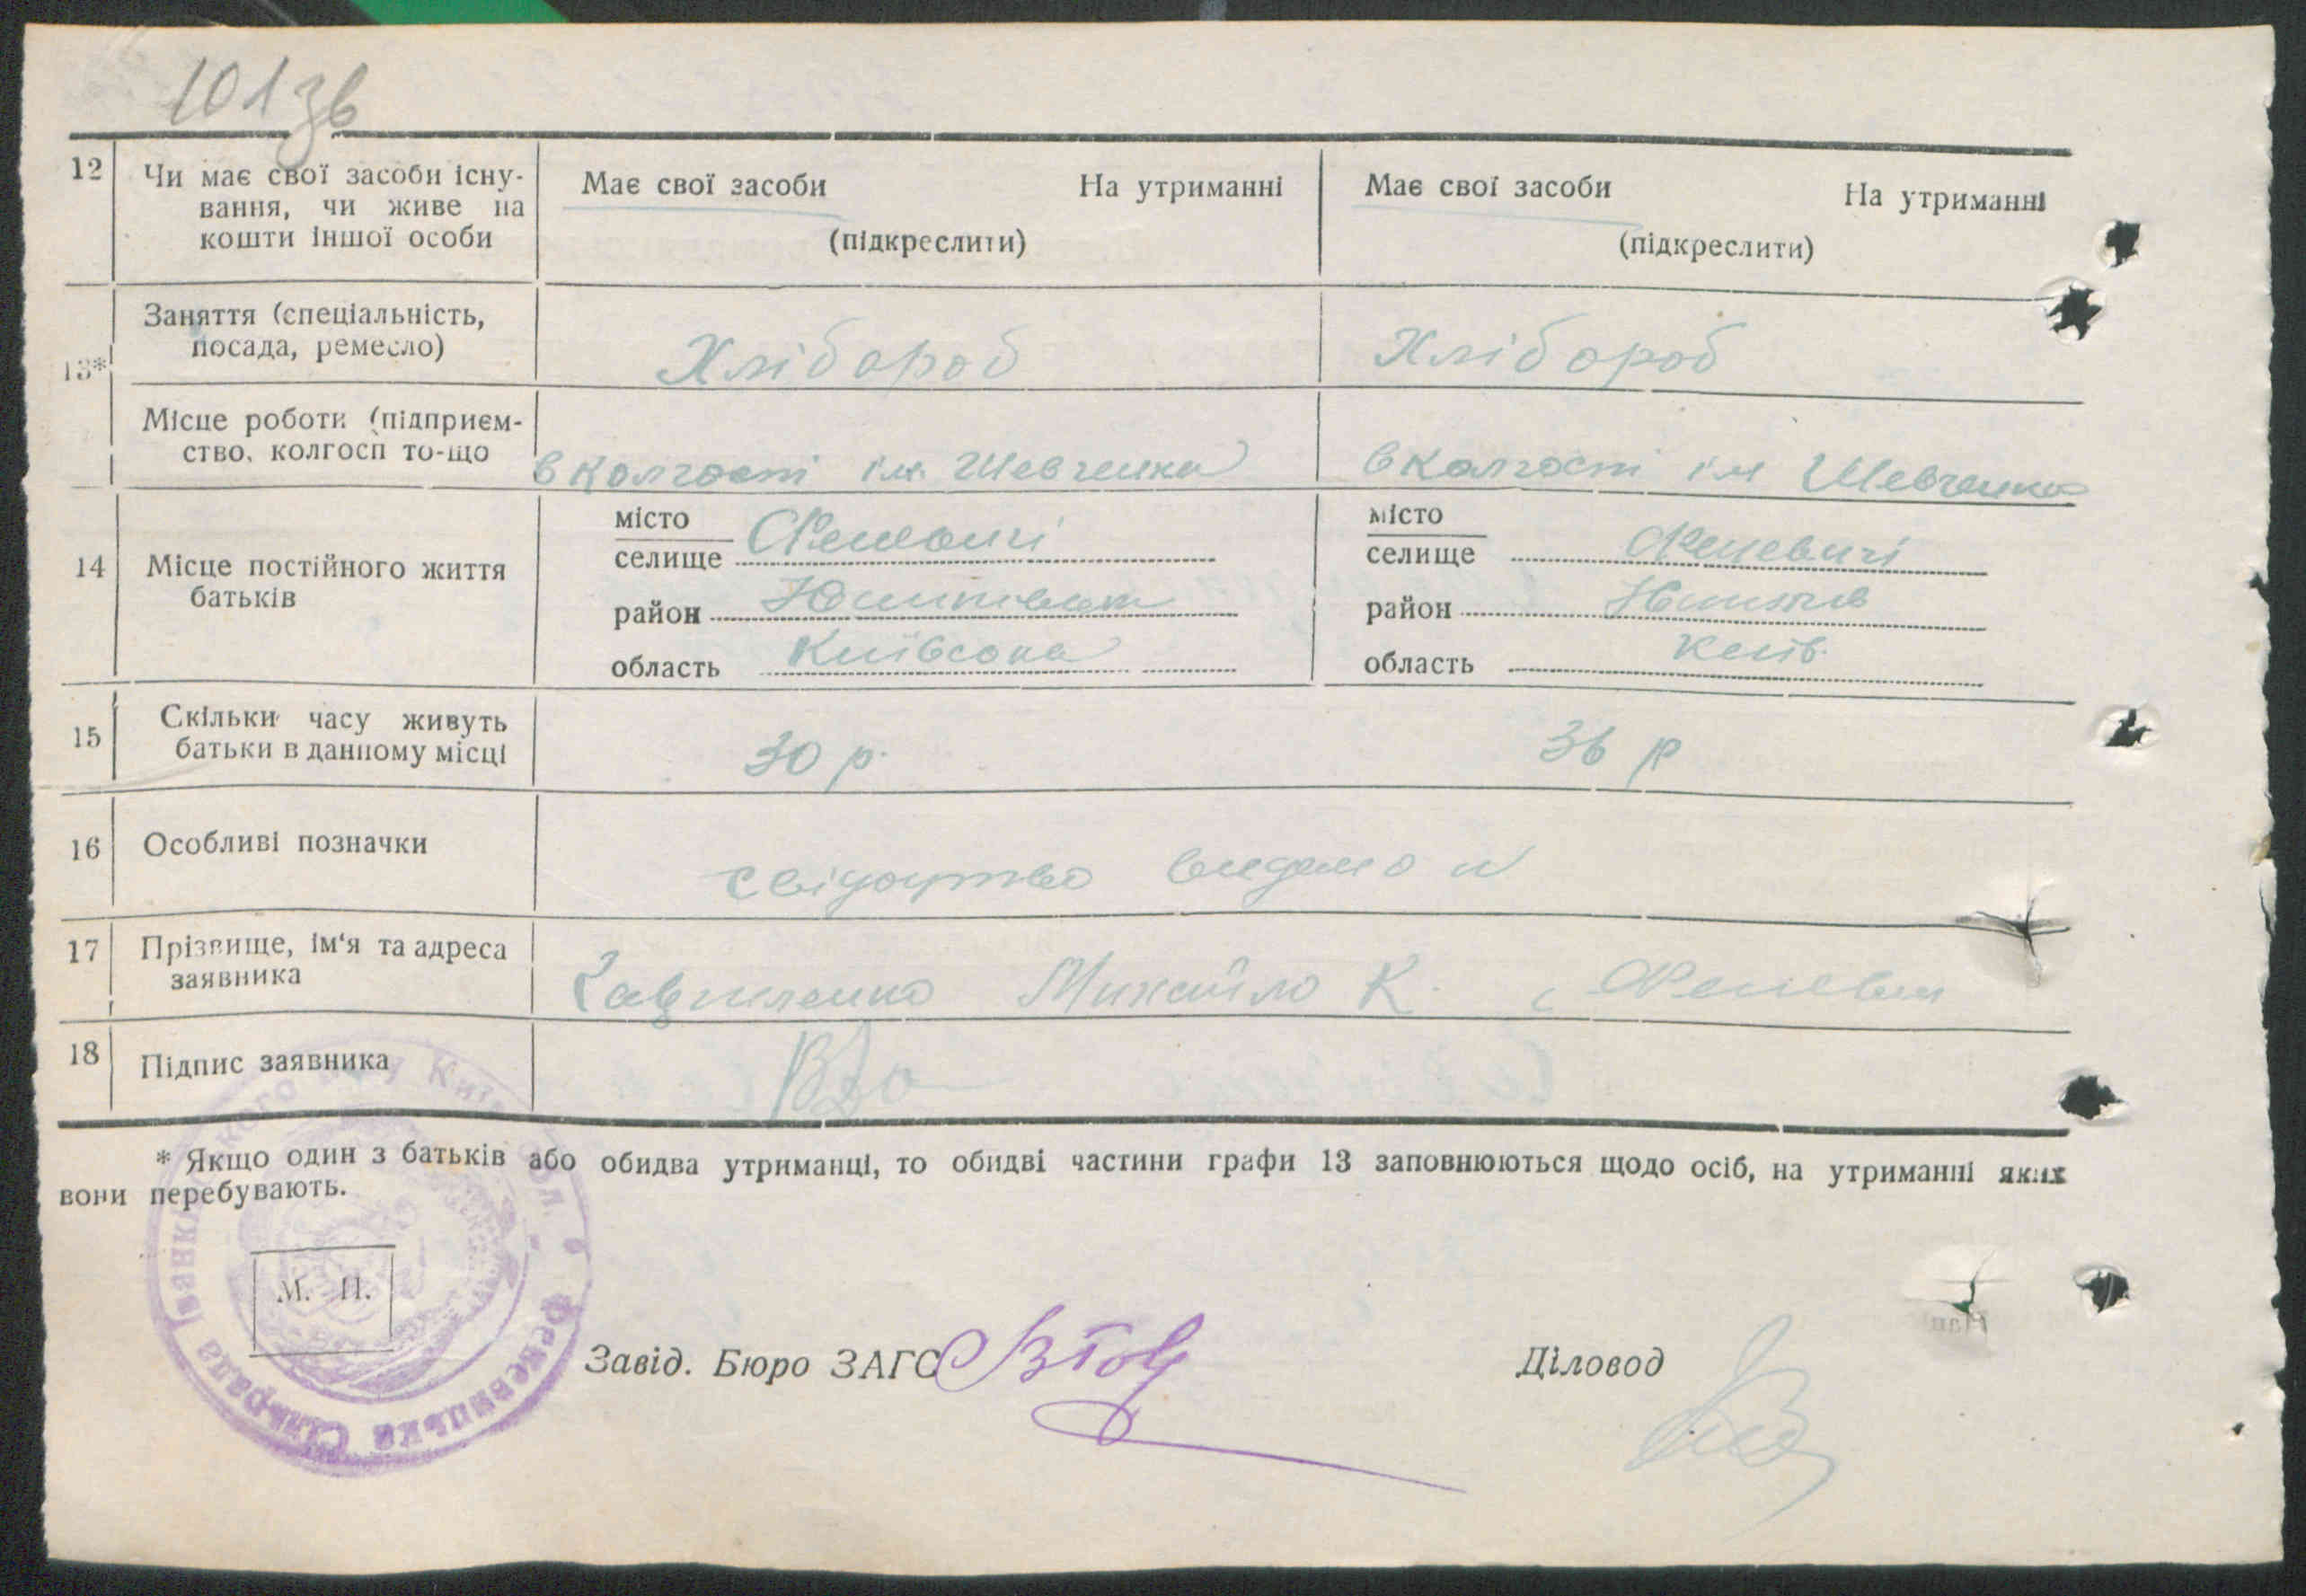 101зв
12 Чи має свої засоби існу-
вання, чи живе на
кошти іншої особи
Має свої засоби На утриманні
(підкреслити)
Має свої засоби На утриманні
(підкреслити)
13*
Заняття (спеціальність,
посада, ремесло)
Хлібороб
Хлібороб
Місце роботи (підприєм-
ство, колгосп то-що
в колгоспі ім. Шевченка
в колгоспі ім Шевченка
14 Місце постійного життя
батьків
місто
селище
район
область Київська
місто
селище Феневичі
район
область Київ.
15 Скільки часу живуть
батьки в данному місці
30 р.
36 р
16 Особливі позначки
свідоцтво видано
17 Прізвище, ім'я та адреса
заявника
Гавриленко Михайло К. с Феневичі
18 Підпис заявника
* Якщо один з батьків або обидва утриманці, то обидві частини графи 13 заповнюються щодо осіб, на утриманні яких
вони перебувають.
М. П.
Феневицька Сільрада Іванківського р-ну Київ. обл.
Завід. Бюро ЗАГС
Діловод